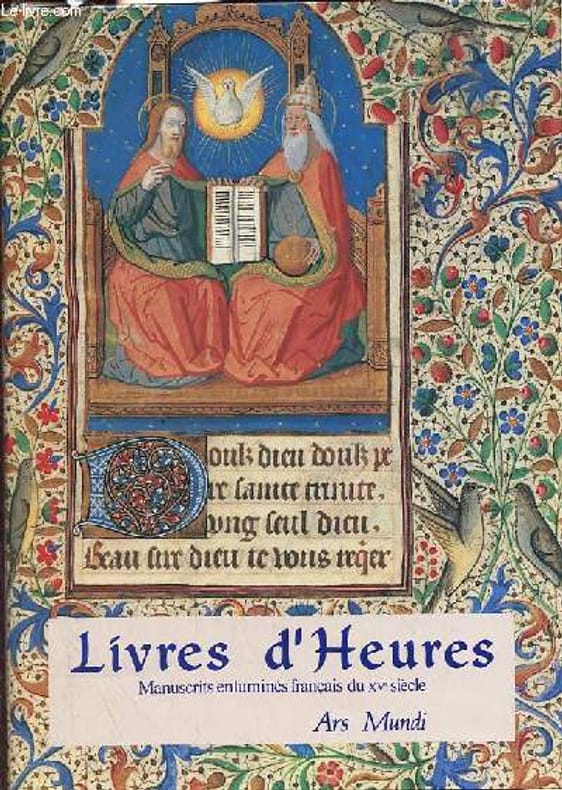 Le-livre.com
Doulz dieu doulz pe
re sainte trinite,
vng seul dieu.
Beau sire dieu ie vous reqer
Livres d'Heures
Manuscrits enluminés français du XVe siècle
Ars Mundi